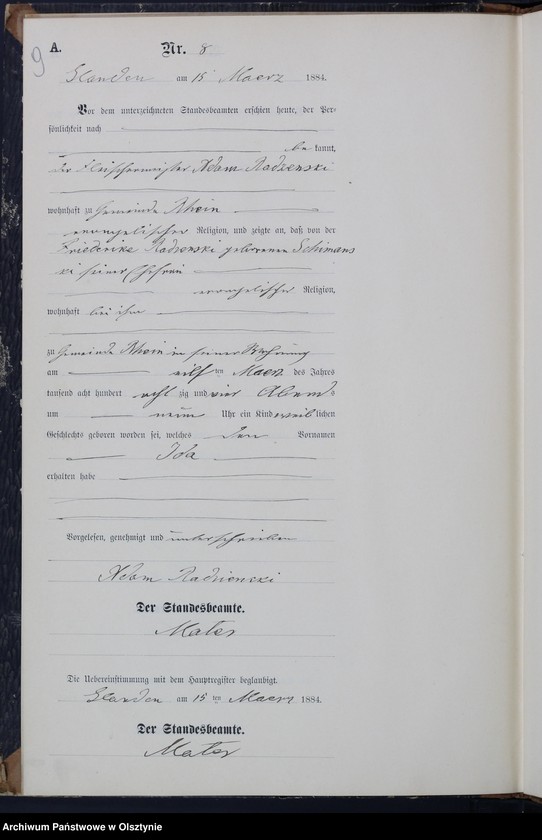 9
A.
Nr. 8
Glanden am 15 Maerz 1884.
Vor dem unterzeichneten Standesbeamten erschien heute, der Per-
sönlichkeit nach
be kannt,
der Fleischermeister Adam Radzenski
wohnhaft zu Gemeinde Rhein
evangelischer Religion, und zeigte an, daß von der
Friederike Radzenski geborenen Schimans
ki seiner Ehefrau
evangelischer Religion,
wohnhaft bei ihm
zu Gemeinde Rhein in seiner Wohnung
am eilf ten Maerz des Jahres
tausend acht hundert acht zig und vier Abend s
um neun Uhr ein Kind weib lichen
Geschlechts geboren worden sei, welches den Vornamen
Ida
erhalten habe
Vorgelesen, genehmigt und unterschrieben
Adam Radziencki
Der Standesbeamte.
Mater
Die Uebereinstimmung mit dem Hauptregister beglaubigt.
Glanden am 15 ten Maerz 1884.
Der Standesbeamte.
Mater
Archiwum Państwowe w Olsztynie